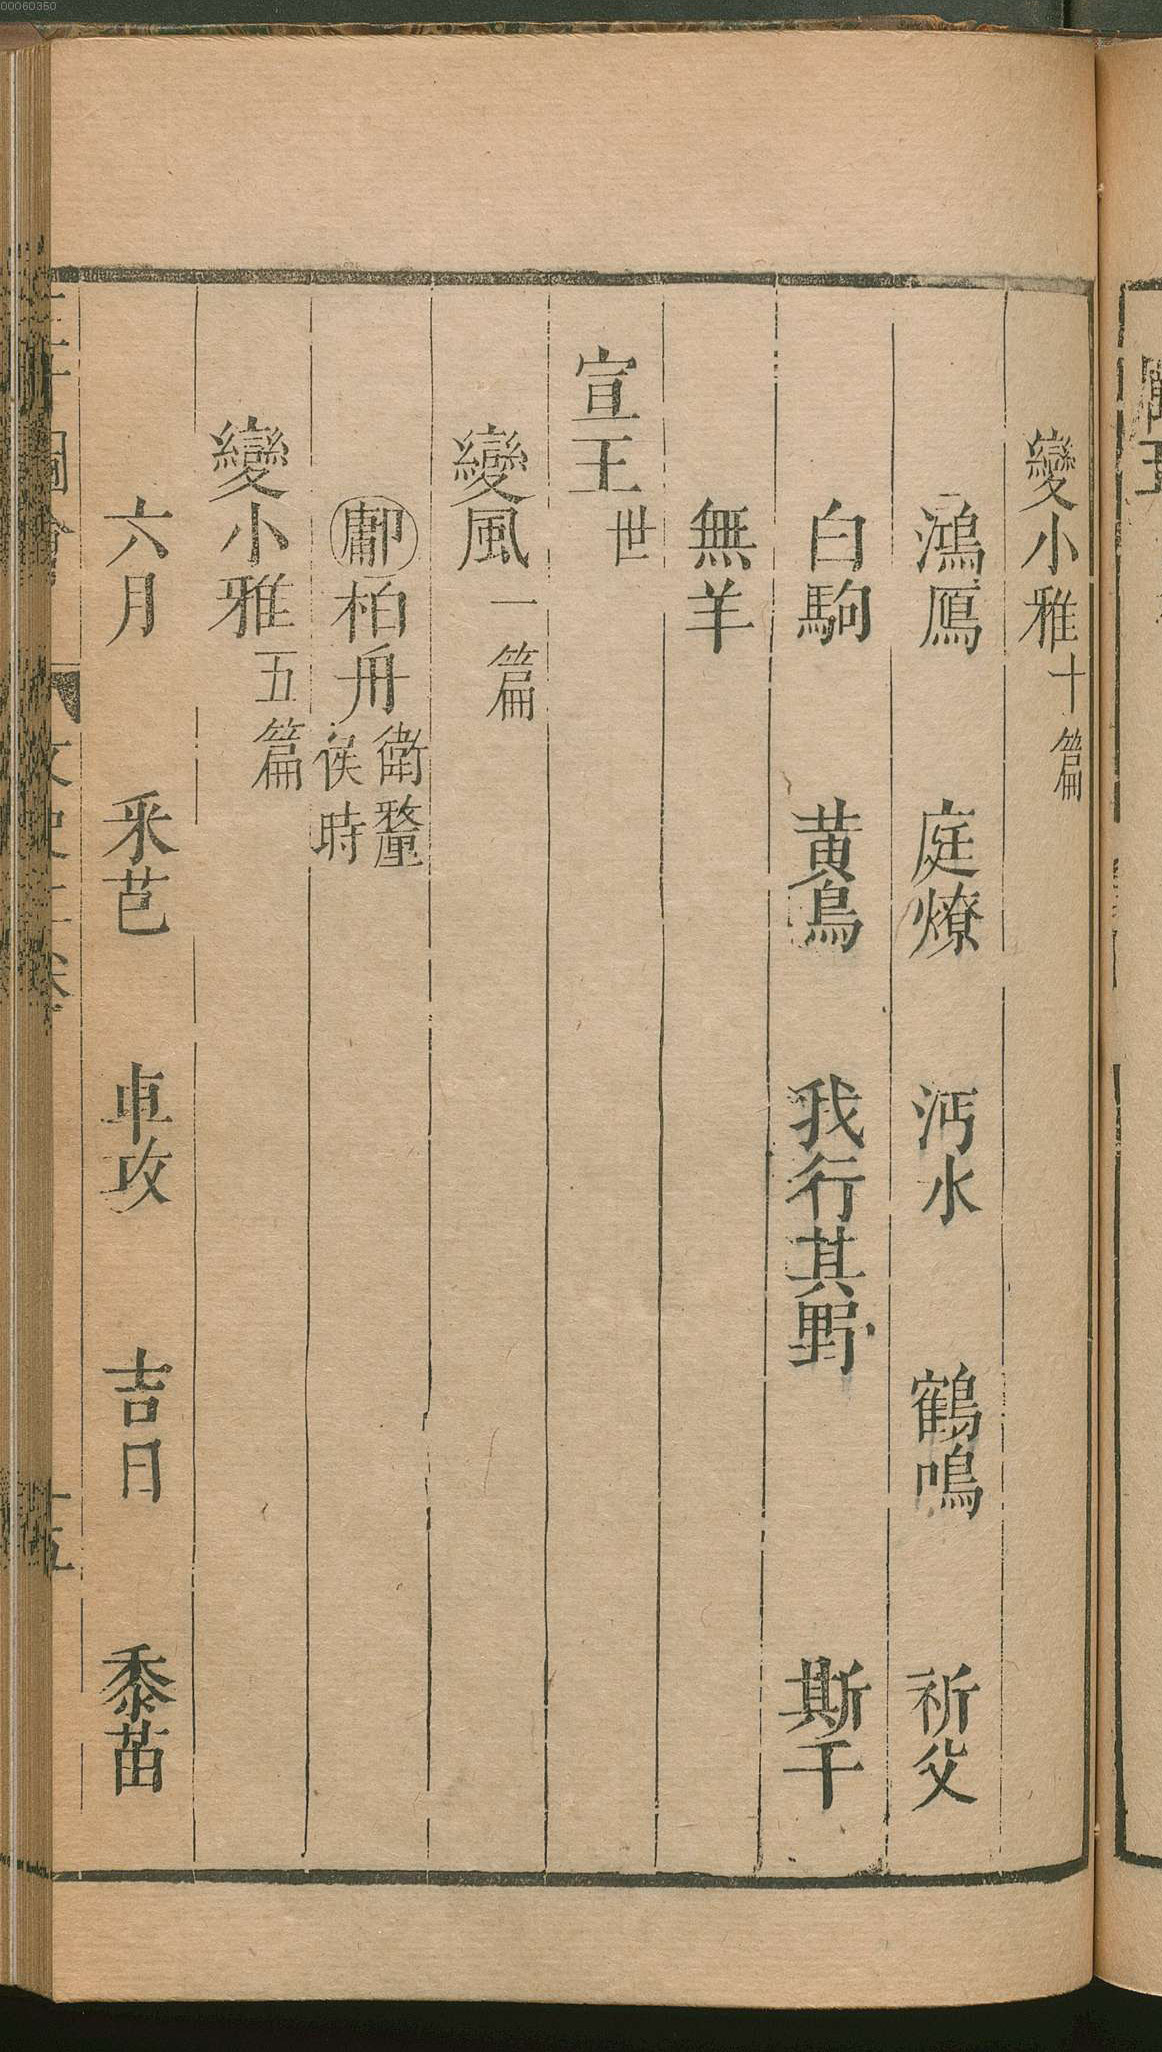 變小雅十篇
鴻鴈 庭燎 沔水 鶴鳴 祈父
白駒 黃鳥 我行其野 斯干
無羊
宣王世
變風一篇
鄘柏舟衛釐侯時
變小雅五篇
六月 釆芑 車攻 吉日 黍苗
00060350